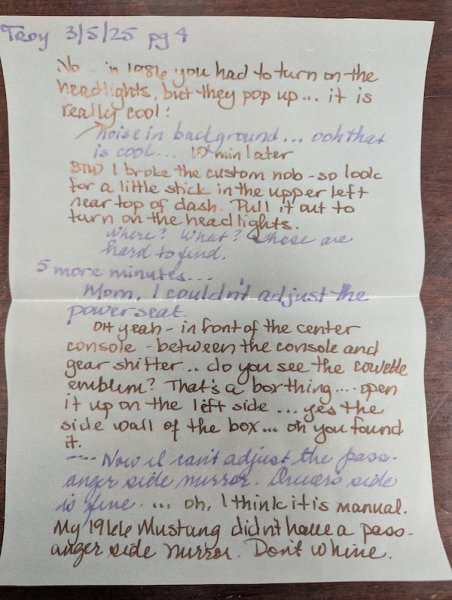 Troy 3/5/25 pg 4
No... in 1986 you had to turn on the
headlights, but they pop up... it is
really cool!
noise in background... ooh that
is cool... 10 min later
BTW I broke the custom nob - so look
for a little stick in the upper left
near top of dash. Pull it out to
turn on the headlights.
Where? What? Those are
hard to find.
5 more minutes...
Mom, I couldn't adjust the
power seat.
OH yeah - in front of the center
console - between the console and
gear shifter... do you see the corvette
emblem? That's a box thing.... open
it up on the left side ... yes the
side wall of the box... oh you found
it.
---- Now I can't adjust the pass-
anger side mirror. Drivers side
is fine .... oh, I think it is manual.
My 1966 Mustang didn't have a pass-
anger side mirror. Don't whine.